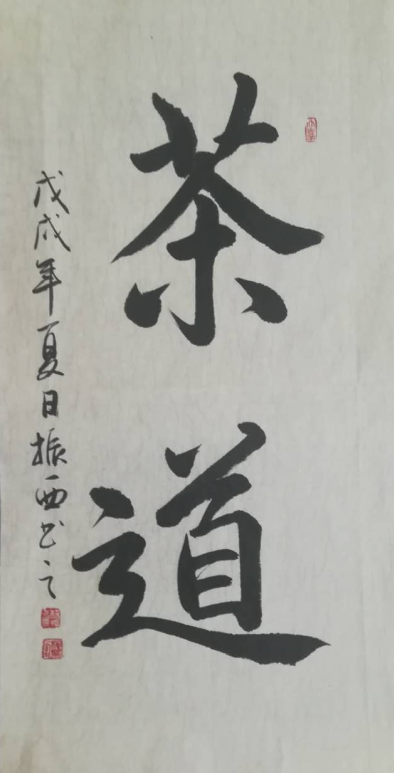 茶道
戊戌年夏日振西书之